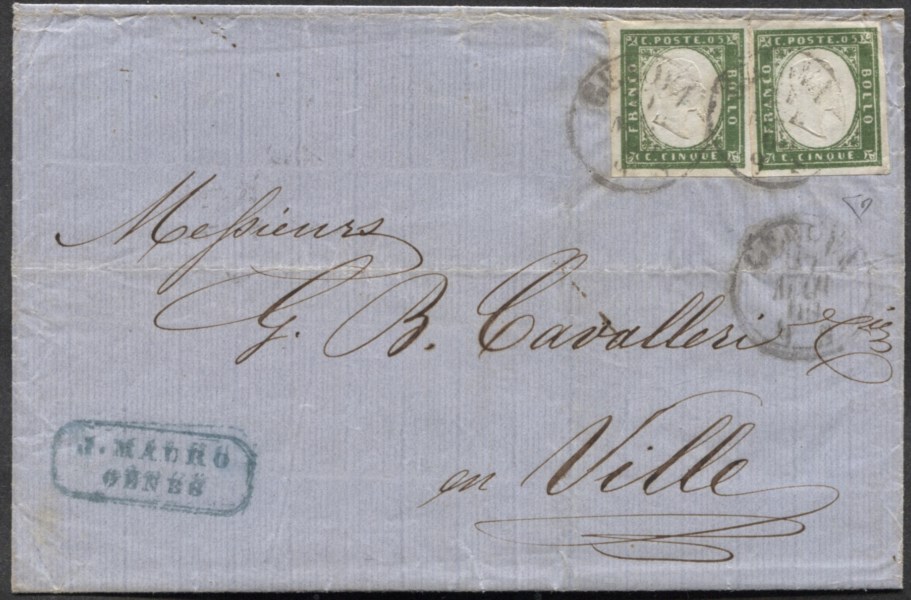 C. POSTE. 05
FRANCO
BOLLO
C. CINQUE
C. POSTE. 05
FRANCO
BOLLO
C. CINQUE
GENOVA
Messieurs
G. B. Cavalleri & Cie
en Ville
J. MAURO
GÊNES